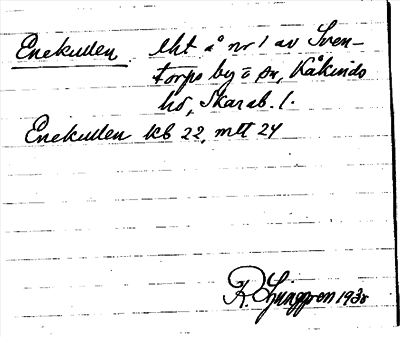 Enekullen. lht å nr 1 av Sven-
torps by o sn, Kåkinds
hd, Skarab. l.
Enekullen kb 22, mtt 24
R. Ljunggren 1930